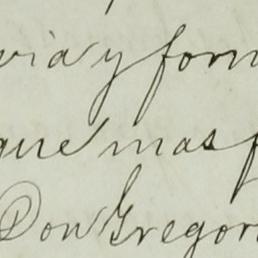 via y form
que mas p
Don Gregor